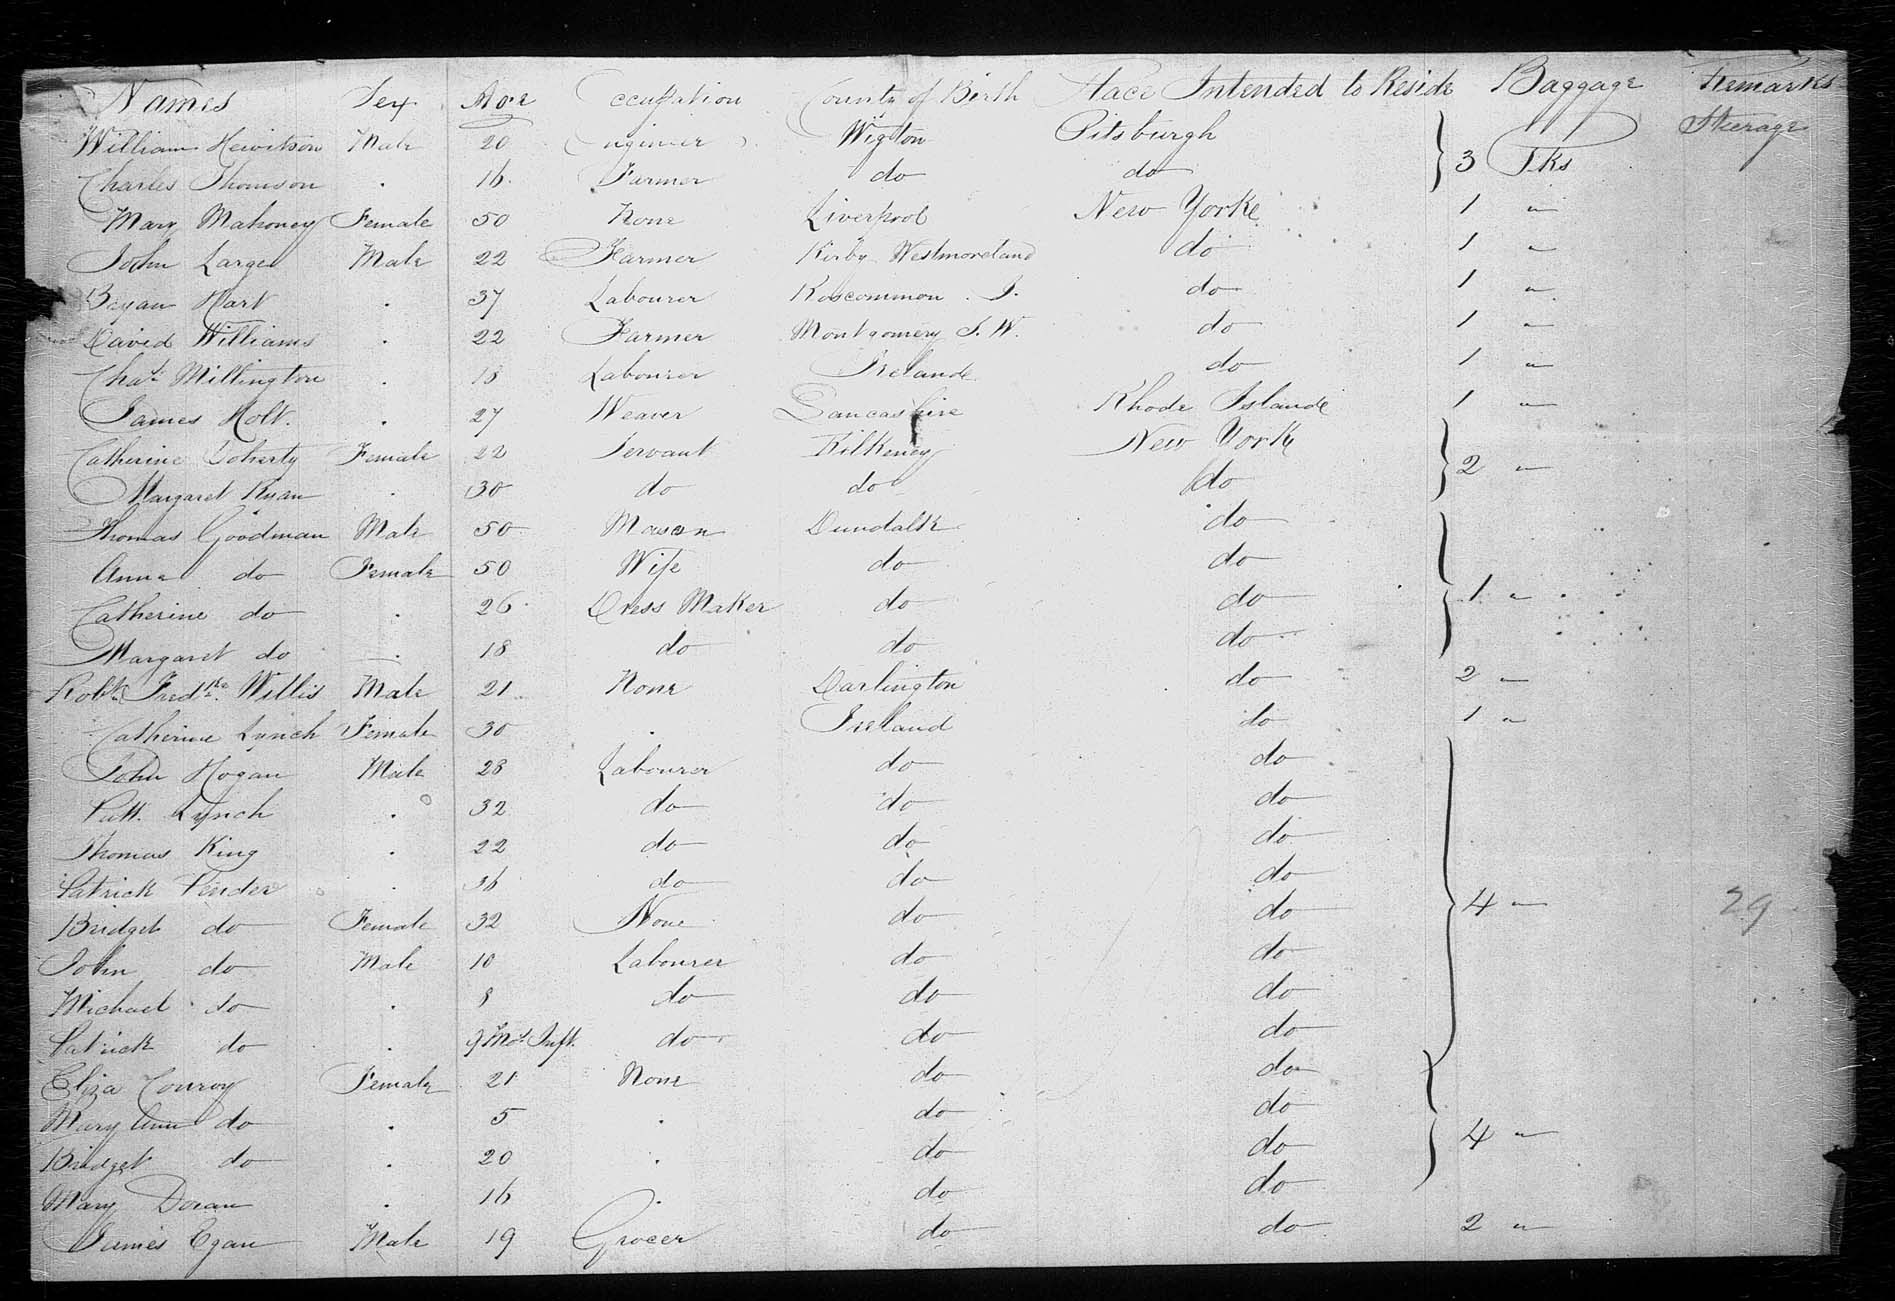 Names Sex Age Occupation County of Birth Place Intended to Reside Baggage Remarks
William Hewitson Male 20 Engineer Wigton Pitsburgh 3 Tks Steerage
Charles Thomson . 16 Farmer do do
Mary Mahoney Female 50 None Liverpool New Yorke 1 "
John Large Male 22 Farmer Kirby Westmoreland do 1 "
Bryan Hart . 37 Labourer Roscommon . I. do 1 "
David Williams . 22 Farmer Montgomery S. W. do 1 "
Chas. Millington . 18 Labourer Irelande do 1 "
James Holt. . 27 Weaver Lancashire Rhode Islande 1 "
Catherine Doherty Female 22 Servant Kilkeney New York 2 "
Margaret Ryan . 30 do do do
Thomas Goodman Male 50 Mason Dundalk do
Anne do Female 50 Wife do do
Catherine do . 26 Dress Maker do do 1 "
Margaret do . 18 do do do
Robt. Fredk. Willis Male 21 None Darlington do 2 "
Catherine Lynch Female 30 . Ireland do 1 "
John Hogan Male 28 Labourer do do
Patt. Lynch . 32 do do do
Thomas King . 22 do do do
Patrick Pender . 36 do do do
Bridget do Female 32 None do do 4 " 29
John do Male 10 Labourer do do
Michael do . 8 do do do
Patrick do . 9 Mos. Inft. do do do
Eliza Conroy Female 21 None do do
Mary Ann do . 5 . do do
Bridget do . 20 . do do 4 "
Mary Doran . 16 . do do
James Egan Male 19 Grocer do do 2 "